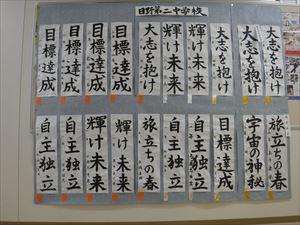 日野第二中学校
大志を抱け
大志を抱け
大志を抱け
輝け未来
輝け未来
大志を抱け
目標達成
目標達成
目標達成
目標達成
旅立ちの春
宇宙の神秘
目標達成
自主独立
自主独立
旅立ちの春
輝け未来
輝け未来
自主独立
自主独立